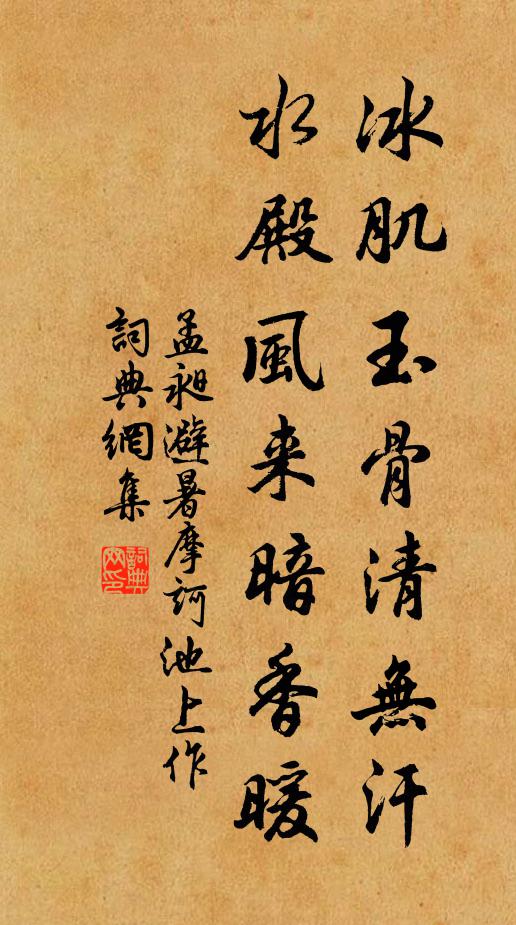 冰肌玉骨清無汗
水殿風来暗香暖
孟昶避暑摩訶池上作
詞典網集
詞典網印